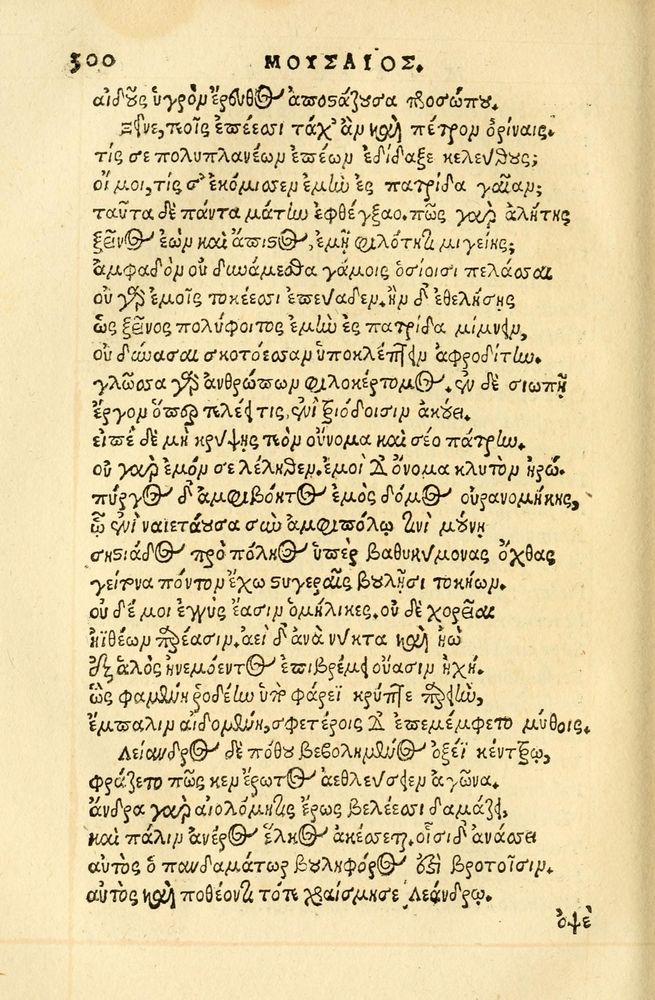 300
ΜΟΥΣΑΙΟΣ.
αἰδοῦς ὑγρὸν ἔρευθος ἀποστάζουσα προσώπου.
Ξεῖνε, τεοῖς ἐπέεσσι τάχ' ἂν καὶ πέτρον ὀρίναις.
τίς σε πολυπλανέων ἐπέων ἐδίδαξε κελεύθους;
οἴ μοι, τίς σ' ἐκόμισεν ἐμὴν ἐς πατρίδα γαῖαν;
ταῦτα δὲ πάντα μάτην ἐφθέγξαο. πῶς γὰρ ἀλήτης
ξεῖνος ἐὼν καὶ ἄπιστος, ἐμῇ φιλότητι μιγείης;
ἀμφαδὸν οὐ δυνάμεσθα γάμοις ὁσίοισι πελάσσαι
οὐ γὰρ ἐμοῖς τοκέεσσι ἐπεύαδεν. ἢν δ' ἐθελήσῃς
ὡς ξεῖνος πολύφοιτος ἐμὴν ἐς πατρίδα μίμνειν,
οὐ δύνασαι σκοτόεσσαν ὑποκλέπτειν ἀφροδίτην.
γλῶσσα γὰρ ἀνθρώπων φιλοκέρτομος. ἐν δὲ σιωπῇ
ἔργον ὅπερ τελεῖ τις, ἐνὶ τριόδοισιν ἀκούει.
εἰπὲ δὲ μὴ κρύψῃς τεὸν οὔνομα καὶ σέο πάτρην.
οὐ γὰρ ἐμόν σε λέληθεν. ἐμοὶ δ' ὄνομα κλυτὸν ἡρώ.
πύργος δ' ἀμφιβόητος ἐμὸς δόμος οὐρανομήκης,
ᾧ ἐνὶ ναιετάουσα σὺν ἀμφιπόλῳ τινὶ μούνῃ
σηστιάδος πρὸ πόληος ὑπὲρ βαθυκύμονας ὄχθας
γείτονα πόντον ἔχω στυγεραῖς βουλῇσι τοκήων.
οὐδέ μοι ἐγγὺς ἔασιν ὁμήλικες. οὐδὲ χορεῖαι
ἠϊθέων παρέασιν. ἀεὶ δ' ἀνὰ νύκτα καὶ ἠὼ
ἐξ ἁλὸς ἠνεμόεντος ἐπιβρέμει οὔασιν ἠχή.
ὣς φαμένη ῥοδέην ὑπὸ φάρεϊ κρύπτε παρειὴν,
ἔμπαλιν αἰδομένη, σφετέροις δ' ἐπεμέμφετο μύθοις.
Λείανδρος δὲ πόθου βεβολημένος ὀξέϊ κέντρῳ,
φράζετο πῶς κεν ἔρωτος ἀεθλεύσειεν ἀγῶνα.
ἄνδρα γὰρ αἰολόμητις ἔρως βελέεσσι δαμάζει,
καὶ πάλιν ἀνέρος ἕλκος ἀκέσσεται. οἷσι δ' ἀνάσσει
αὐτὸς ὁ πανδαμάτωρ βουληφόρος ἐστὶ βροτοῖσιν.
αὐτὸς καὶ ποθέοντι τότε χραίσμησε Λεάνδρῳ.
ὀψὲ